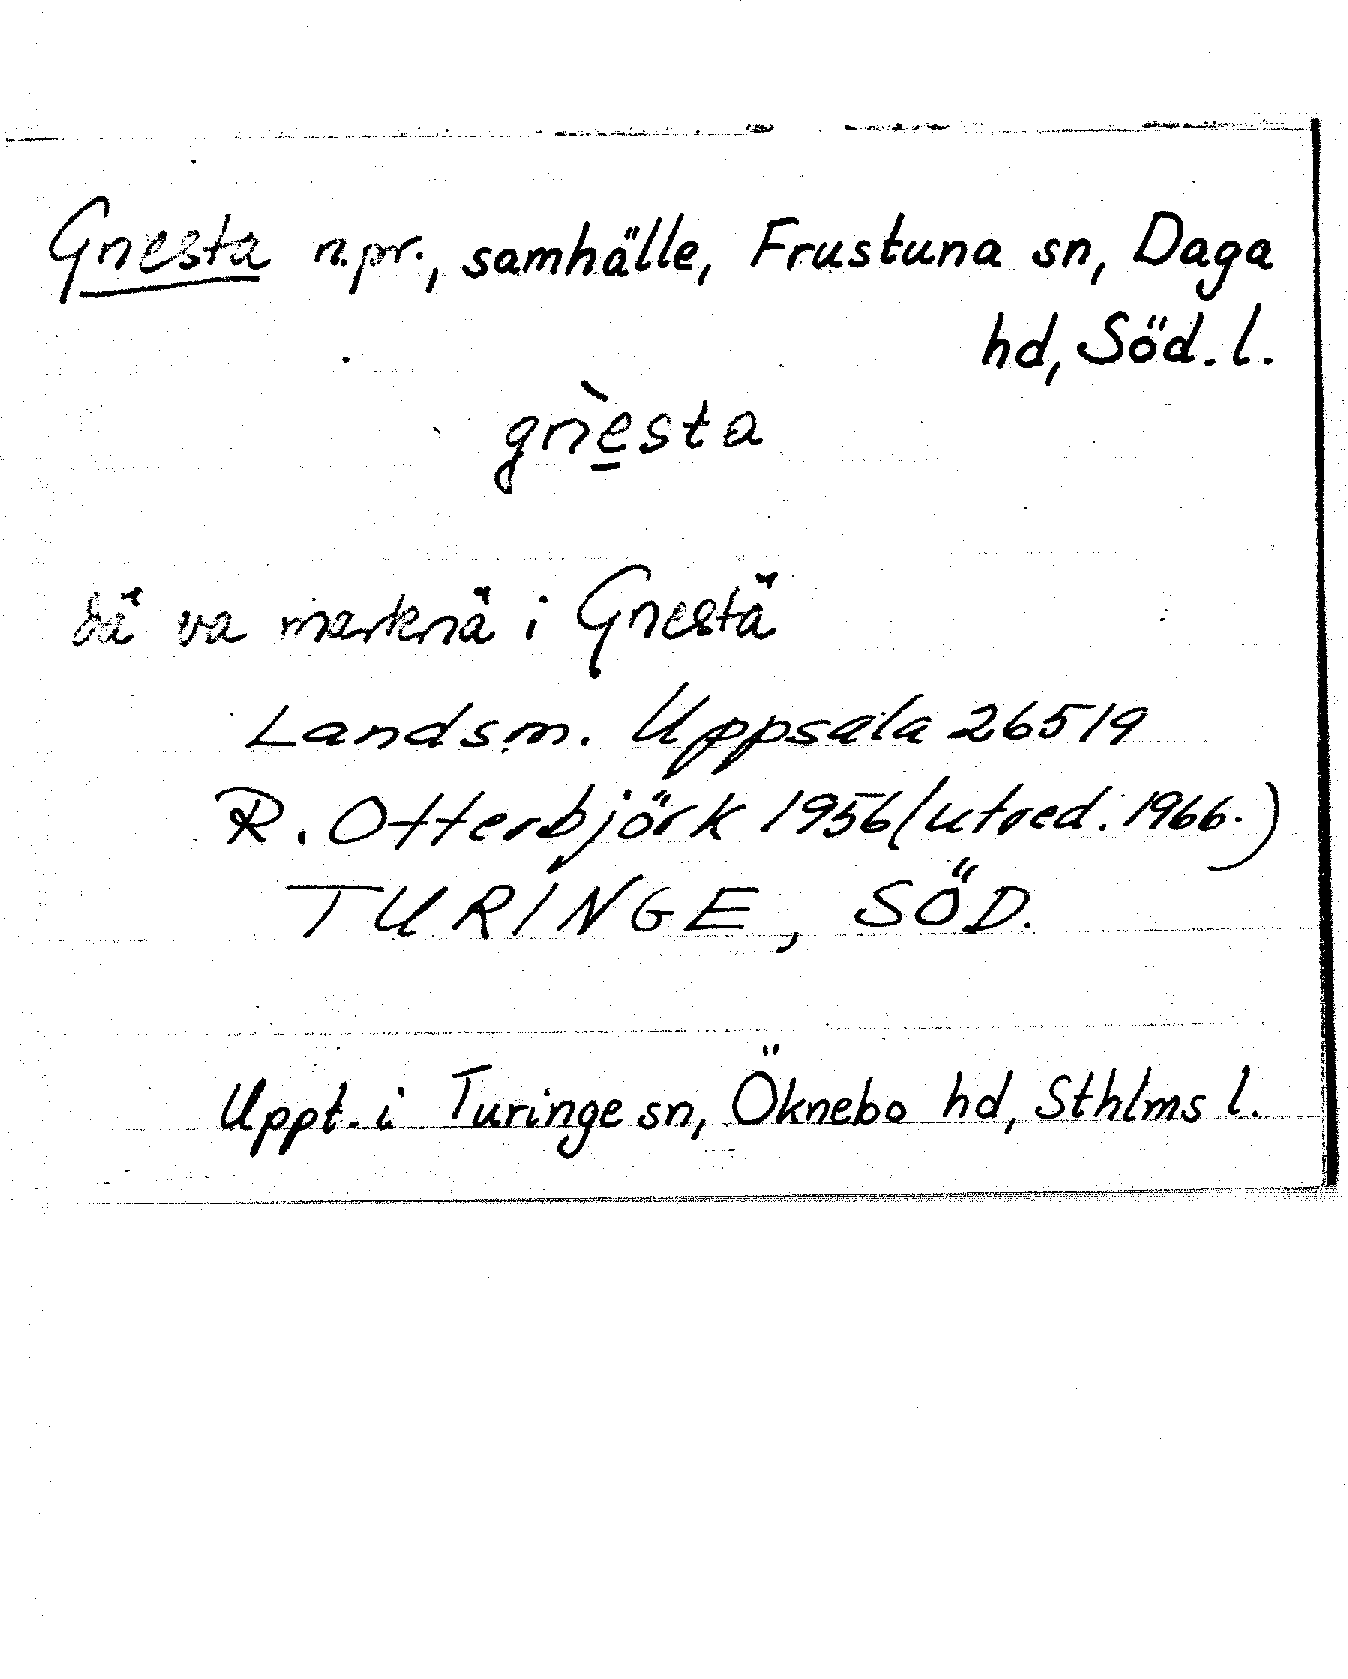 Gnesta n.pr., samhälle, Frustuna sn, Daga
hd, Söd. l.
gnè̱sta
dä va marknä i Gnestä
Landsm. Uppsala 26519
R. Otterbjörk 1956 (utred. 1966.)
TURINGE, SÖD.
Uppt. i Turinge sn, Öknebo hd, Sthlms l.